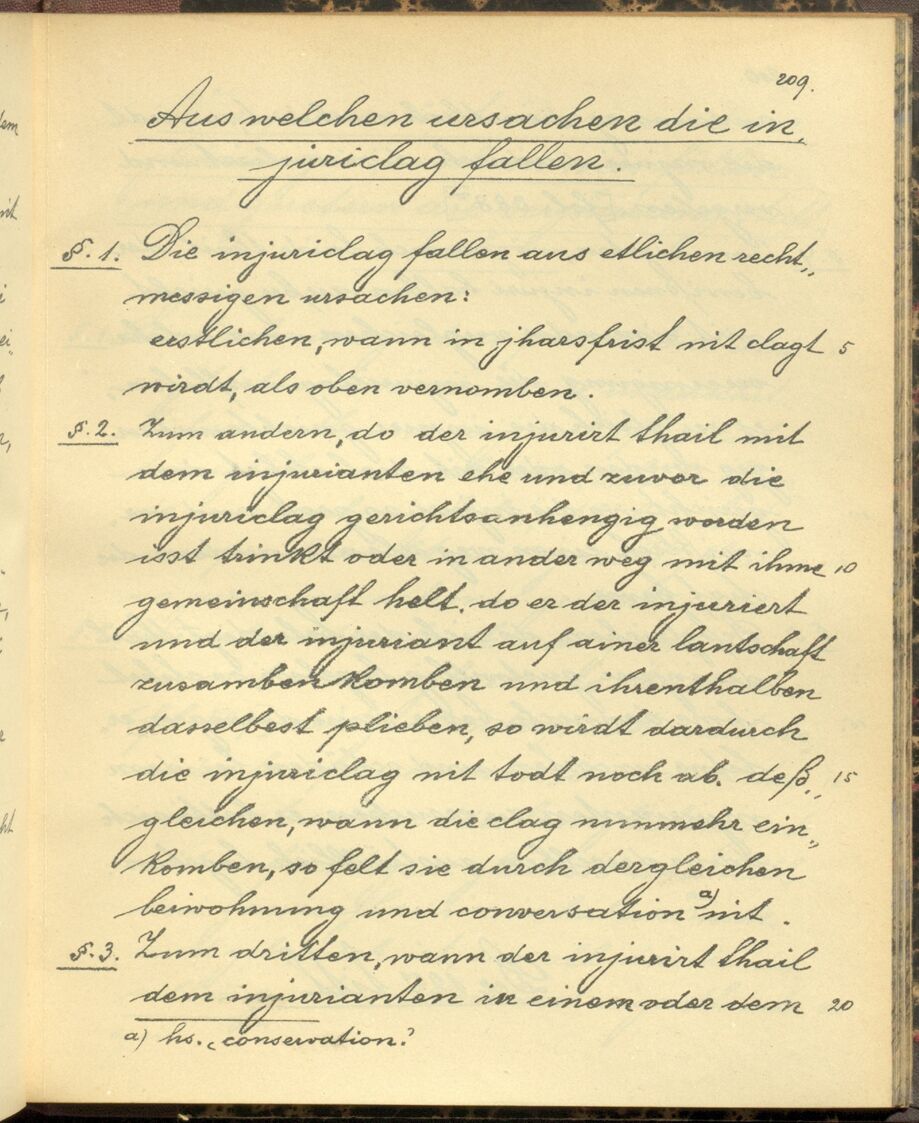 209.
Aus welchen ursachen die in,
juriclag fallen.
§. 1. Die injuriclag fallen aus etlichen recht„
messigen ursachen:
erstlichen, wann in jharsfrist nit clagt 5
wirdt, als oben vernomben.
§. 2. Zum andern, do der injurirt thail mit
dem injurianten ehe und zuvor die
injuriclag gerichtsanhengig worden
isst trinkt oder in ander weg mit ihme 10
gemeinschaft helt. do er der injuriert
und der injuriant auf ainer lantschaft
zusamben komben und ihrenthalben
dasselbest plieben, so wirdt dardurch
die injuriclag nit todt noch ab. deß„ 15
gleichen, wann die clag nunmehr ein„
komben, so felt sie durch dergleichen
beiwohnung und conversation a) nit.
§. 3. Zum dritten, wann der injurirt thail
dem injurianten in einem oder dem 20
a) hs. „conservation.“